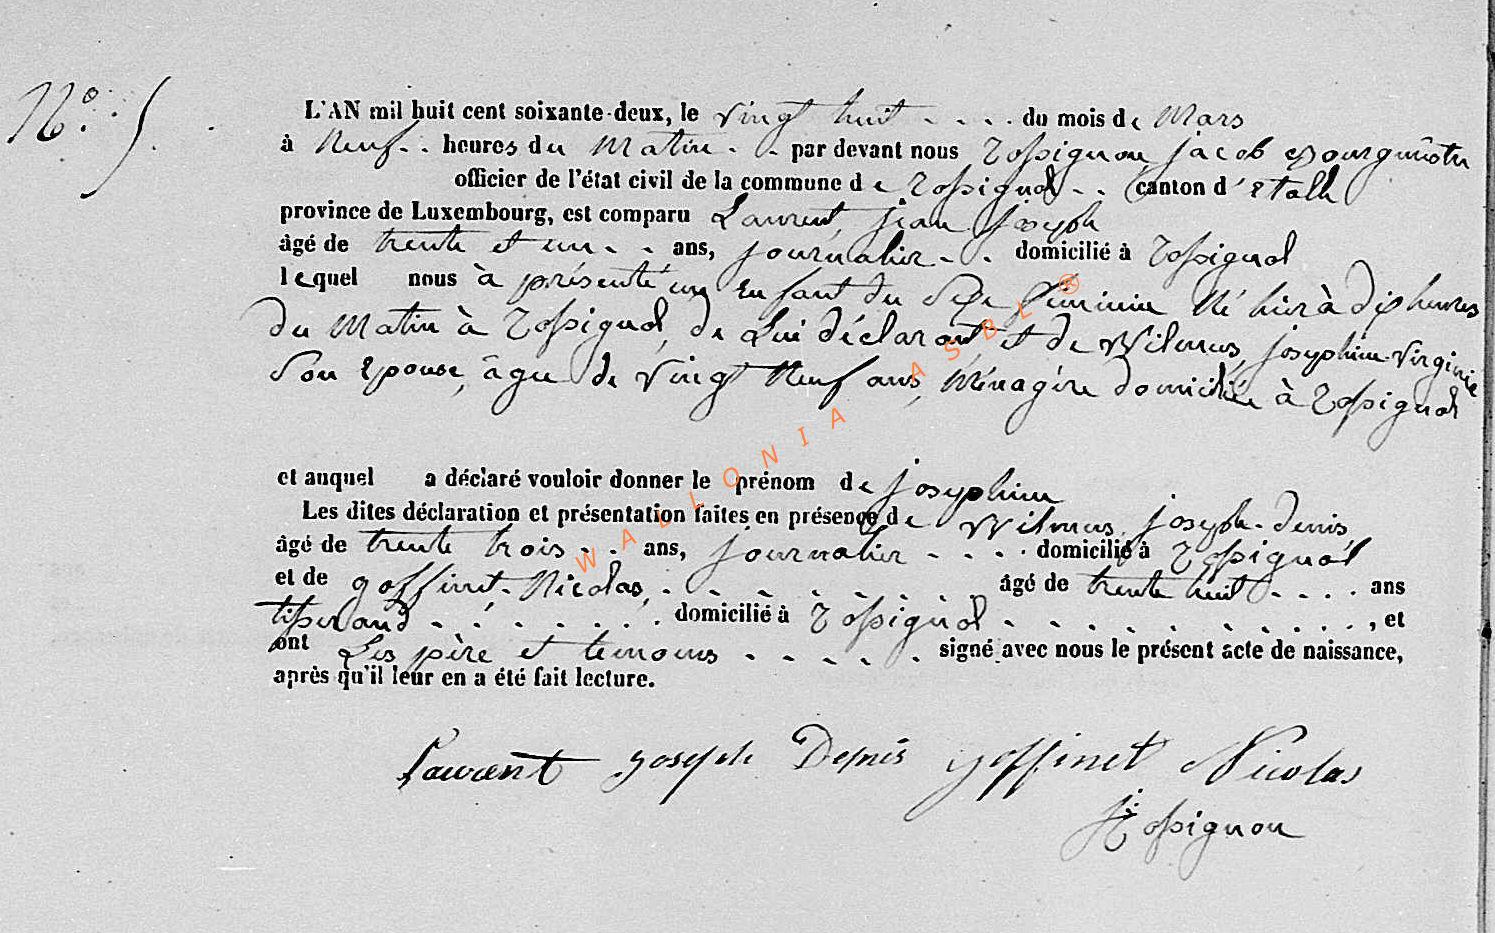 N° 5
L'AN mil huit cent soixante-deux, le vingt huit - - - - du mois de Mars
à Neuf - - heures du Matin - - par devant nous Rossignon, jacob Bourgumestre
officier de l'état civil de la commune de Rossignol - - canton d'etalle
province de Luxembourg, est comparu Laurent, jean joseph
âgé de trente et un - - ans, journalier - - domicilié à Rossignol
lequel nous à présenté un Enfant du Sexe féminin Né hier à dix heures
du Matin à Rossignol, de Lui déclarant et de Wilmus, josephine Virginie
Son Epouse, âgée de Vingt Neuf ans, Ménagère domiciliée à Rossignol
et auquel a déclaré vouloir donner le prénom de josephine
Les dites déclaration et présentation faites en présence de Wilmus, joseph-denis,
âgé de trente trois - - ans, journalier - - - - domicilié à Rossignol
et de goffinet, Nicolas, - - - - - - - - âgé de trente huit - - - - ans
tisserand - - - - - - - domicilié à Rossignol - - - - - - - - - - - , et
ont Les père et temoins - - - - - signé avec nous le présent acte de naissance,
après qu'il leur en a été fait lecture.
Laurent joseph Denis goffinet Nicolas
Rossignon
WALLONIA ASBL ®